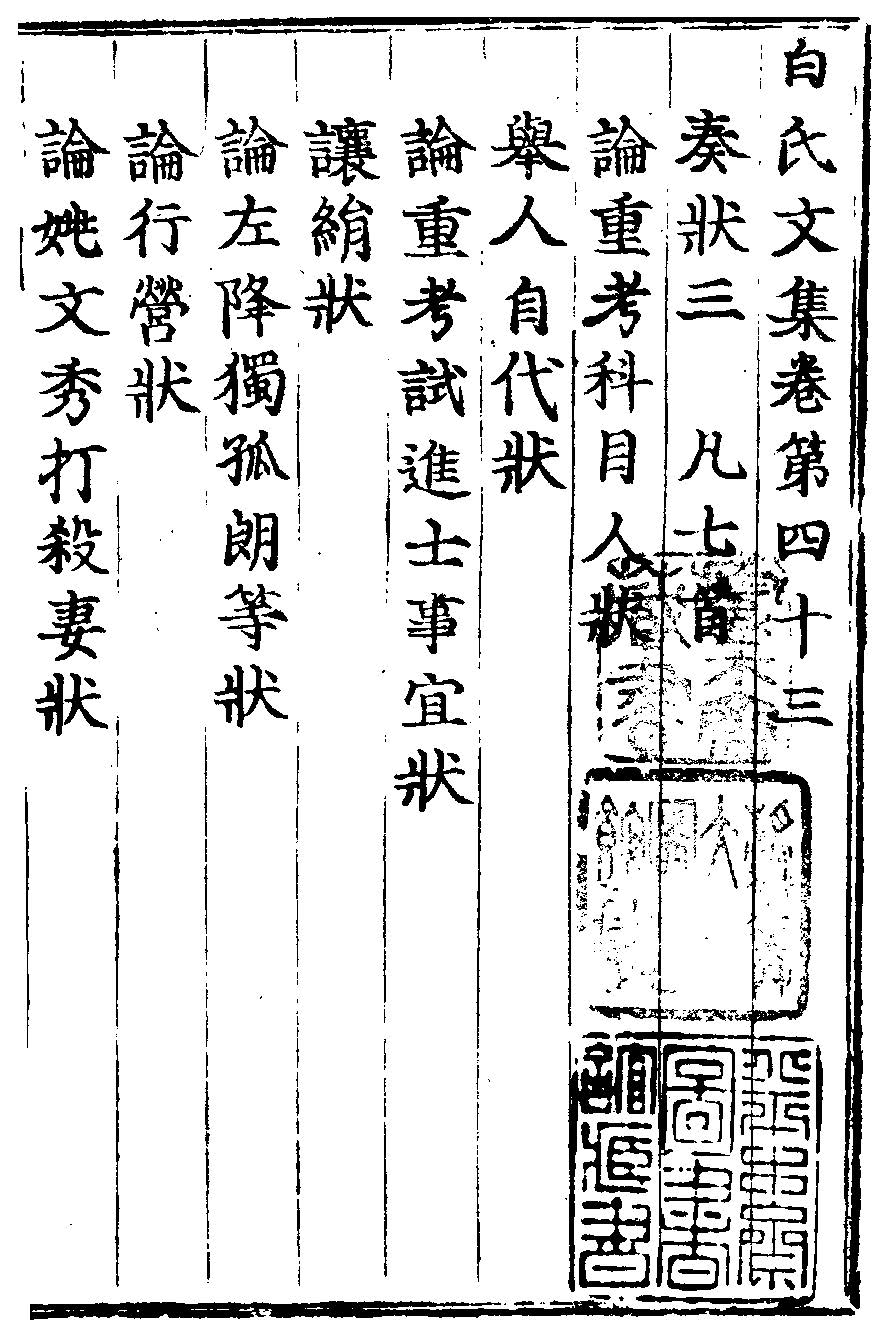 白氏文集卷第四十三
奏狀三 凡七首
論重考科目人狀
舉人自代狀
論重考試進士事宜狀
讓絹狀
論左降獨孤朗等狀
論行營狀
論姚文秀打殺妻狀